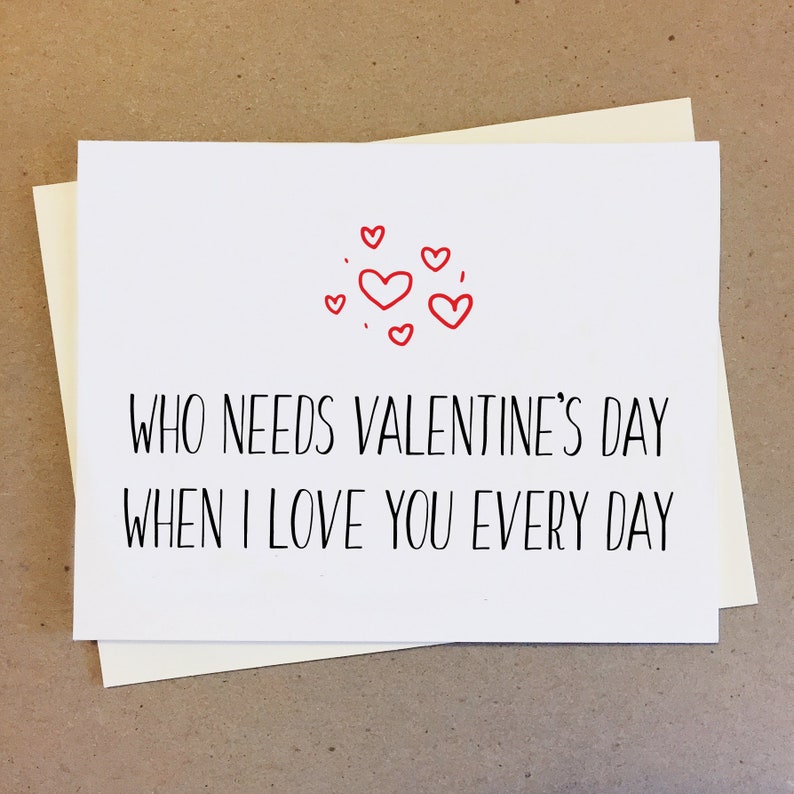 WHO NEEDS VALENTINE'S DAY
WHEN I LOVE YOU EVERY DAY